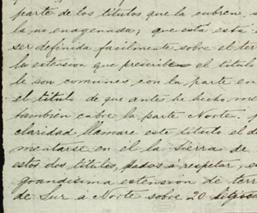 parte de los titulos que la cubren, s
la no enagenada; que esta esta
ser definida facilmente sobre el ter
la estension que prescribe el titulo
le son comunes con la parte en
el titulo de que antes he hecho me
tambien cabe la parte Norte.
claridad llamare este titulo el d
mentarse en él la Sierra de
estos dos titulos, a respetar,
grandisima estension de terr
de Sur á Norte sobre 20